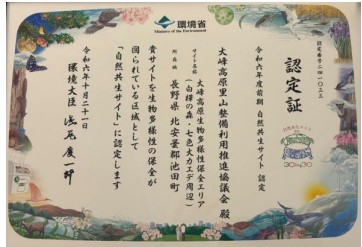 環境省
Ministry of the Environment
認定番号二四一〇三三
認定証
令和六年度前期 自然共生サイト 認定
大峰高原里山整備利用推進協議会 殿
サイト名称
大峰高原生物多様性保全エリア
(白樺の森・七色大カエデ周辺)
所在地 長野県 北安曇郡池田町
貴サイトを生物多様性の保全が
図られている区域として
「自然共生サイト」に認定します
令和六年十月二十一日
環境大臣
自然共生サイト
30by30